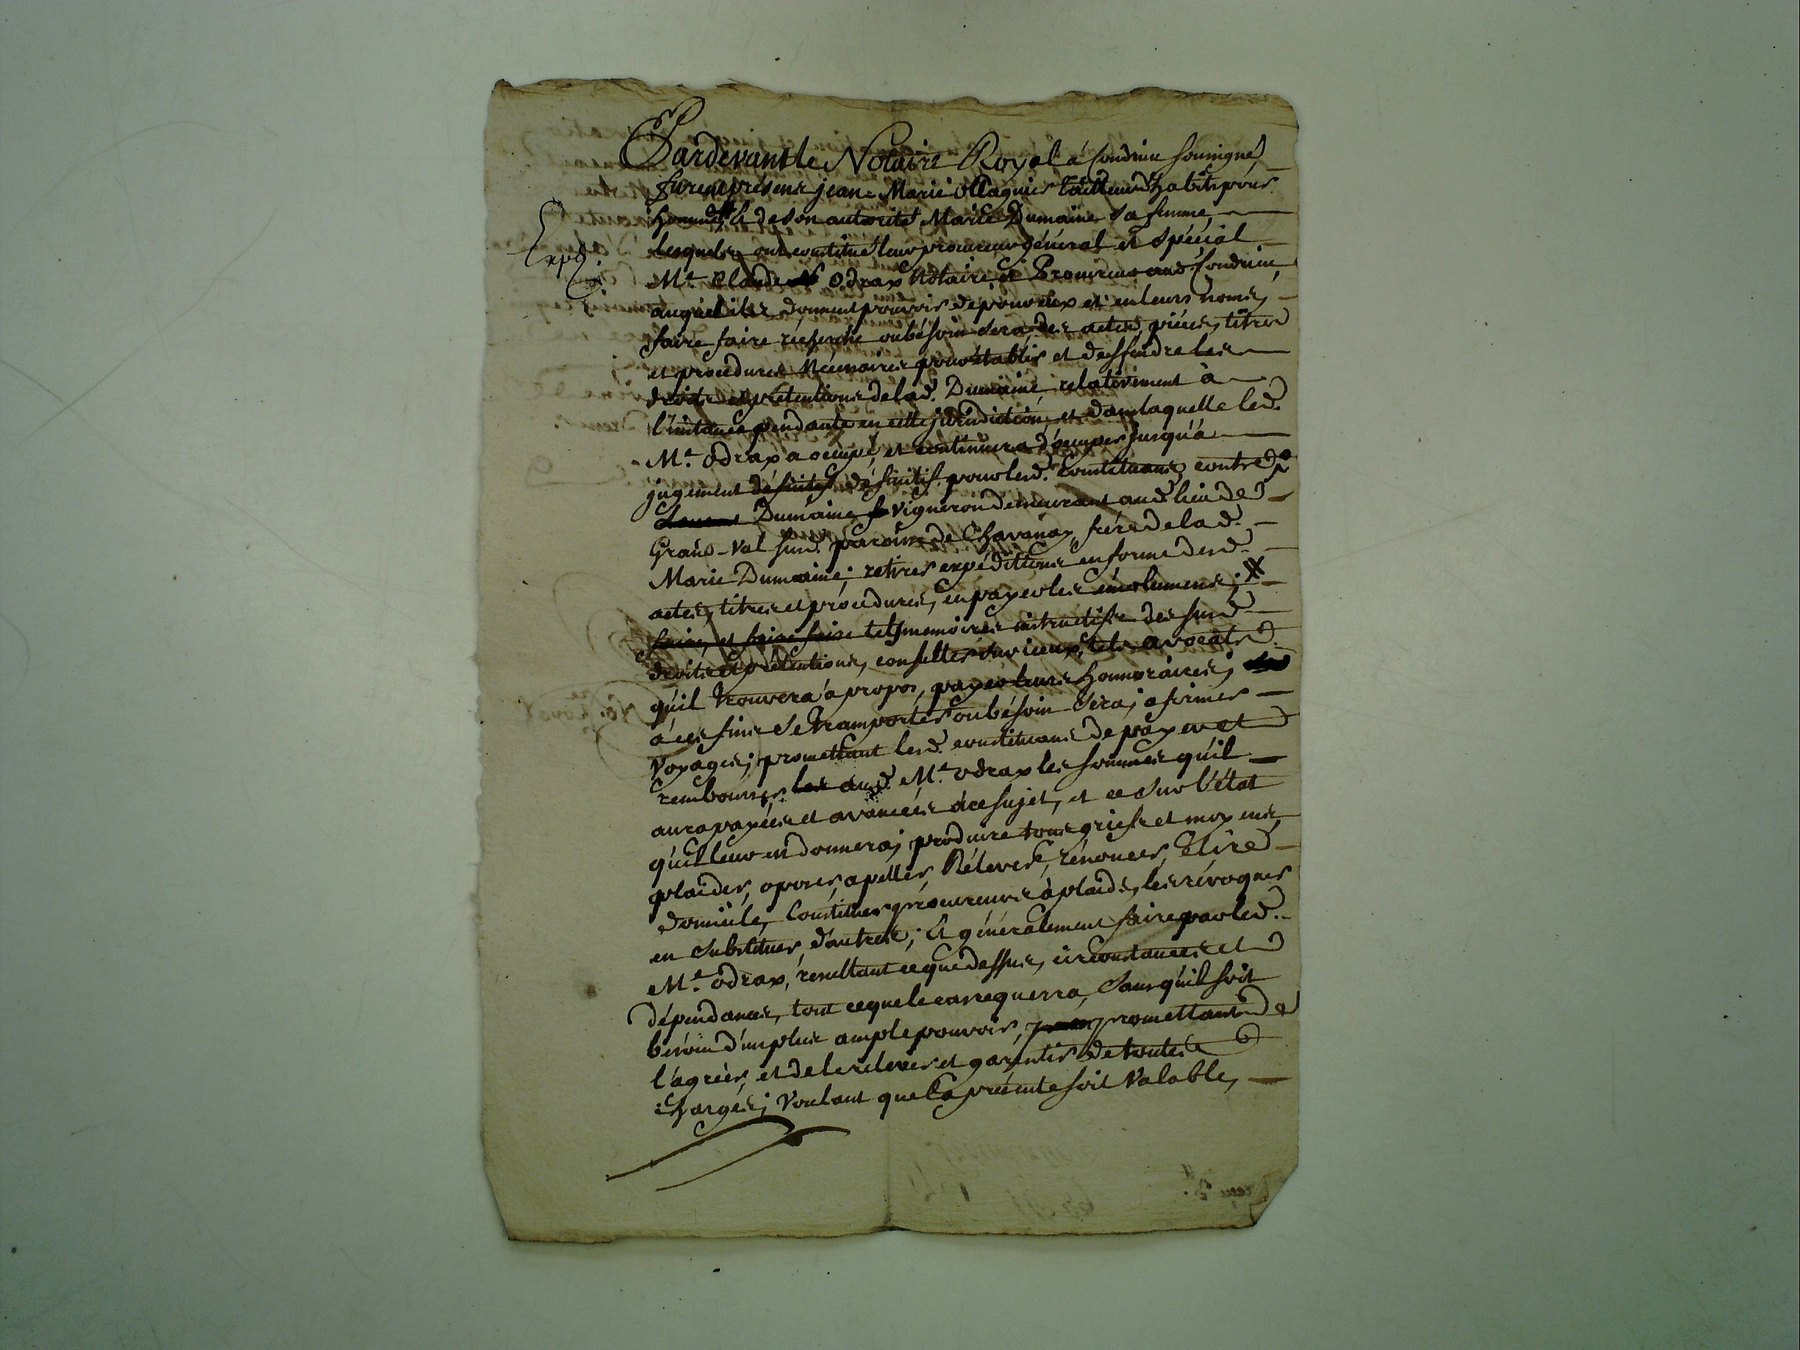 Pardevant le Notaire Royal á Condrieu soussigné,
furent présens jean-Marie Ollagnier Tailleur d'habits pour
hommes, & de son autorité Marie Dumaine sa femme,
lesquels ont constitué leur procureur général et spécial
Expd.
Me. Claude Odrax Notaire et Procureur aud. Condrieu,
auquel ils donnent pouvoir de pour eux et en leurs noms,
faire faire récherche ou bésoin sera, des actes, piéces, titres
et procédures nécessaires pour établir et deffendre les
droits et prétentions de lad. Dumaine, relativement à
l'instance pendante en cette jurisdiction, et dans laquelle led.
Me. Odrax a occupé, et continuera d'occuper jusqu'à
jugement définitif pour lesd. constituans, contre
Dumaine vigneron demeurant aud. lieu de
Grand-Val susd. paroisse de Chavanay, frére de lad.
Marie Dumaine; retirer expéditions en forme desd.
actes, titres et procédures, en payer les émolumens;
faire, et faire faire tels mémoires instructifs des susd.
droits et prétentions, consulter sur iceux, tels avocats
qu'il trouvera à propos, payer leurs honnoraires;
á ces fins se transporter ou bésoin sera; afirmer
voyages; promettant lesd. constituans de payer et
rembourser aud. Me. Odrax les sommes qu'il
aura payées et avancées á ce sujet, et ce sur l'état
qu'il leur en donnera; produire tous griefs et moyens,
plaider, oposer, apeller, Rélever, rénoncer, Elire
domicile, Constituer procureurs à plaids, les révoquer
en substituer d'autres; Et généralement faire par led.
Me. Odrax, résultant ce que dessus, circonstances et
dépendances, tout ce que le cas requerra, sans qu'il soit
bésoin d'un plus ample pouvoir, promettant de
l'agréer, et de le relever et garentir de toutes
charges; Voulant que la présente soit valable,